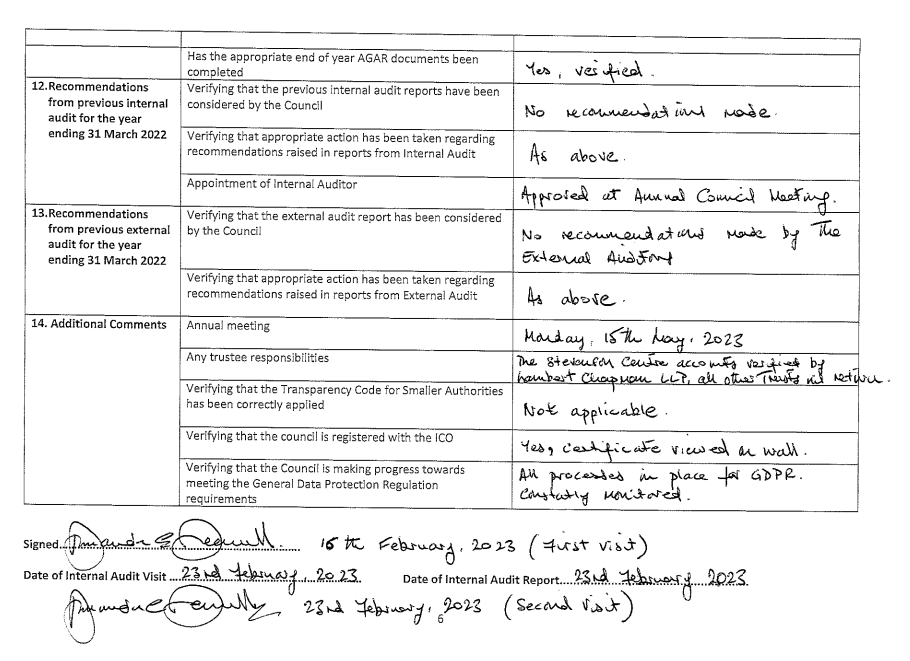 Has the appropriate end of year AGAR documents been
completed
Yes, verified.
12.Recommendations
from previous internal
audit for the year
ending 31 March 2022
Verifying that the previous internal audit reports have been
considered by the Council
No recommendations made.
Verifying that appropriate action has been taken regarding
recommendations raised in reports from Internal Audit
As above.
Appointment of Internal Auditor
Approved at Annual Council Meeting.
13.Recommendations
from previous external
audit for the year
ending 31 March 2022
Verifying that the external audit report has been considered
by the Council
No recommendations made by The
External Auditors
Verifying that appropriate action has been taken regarding
recommendations raised in reports from External Audit
As above.
14. Additional Comments
Annual meeting
Monday, 15th May, 2023
Any trustee responsibilities
The Stevenson Centre accounts verified by
Lambert Chapman LLP, all other Trusts nil return.
Verifying that the Transparency Code for Smaller Authorities
has been correctly applied
Not applicable.
Verifying that the council is registered with the ICO
Yes, certificate viewed on wall.
Verifying that the Council is making progress towards
meeting the General Data Protection Regulation
requirements
All processes in place for GDPR.
Constatly monitored.
Signed 16th February, 2023 (First visit)
Date of Internal Audit Visit 23rd February, 2023. Date of Internal Audit Report 23rd February 2023
23rd February, 2023 (Second visit)
6